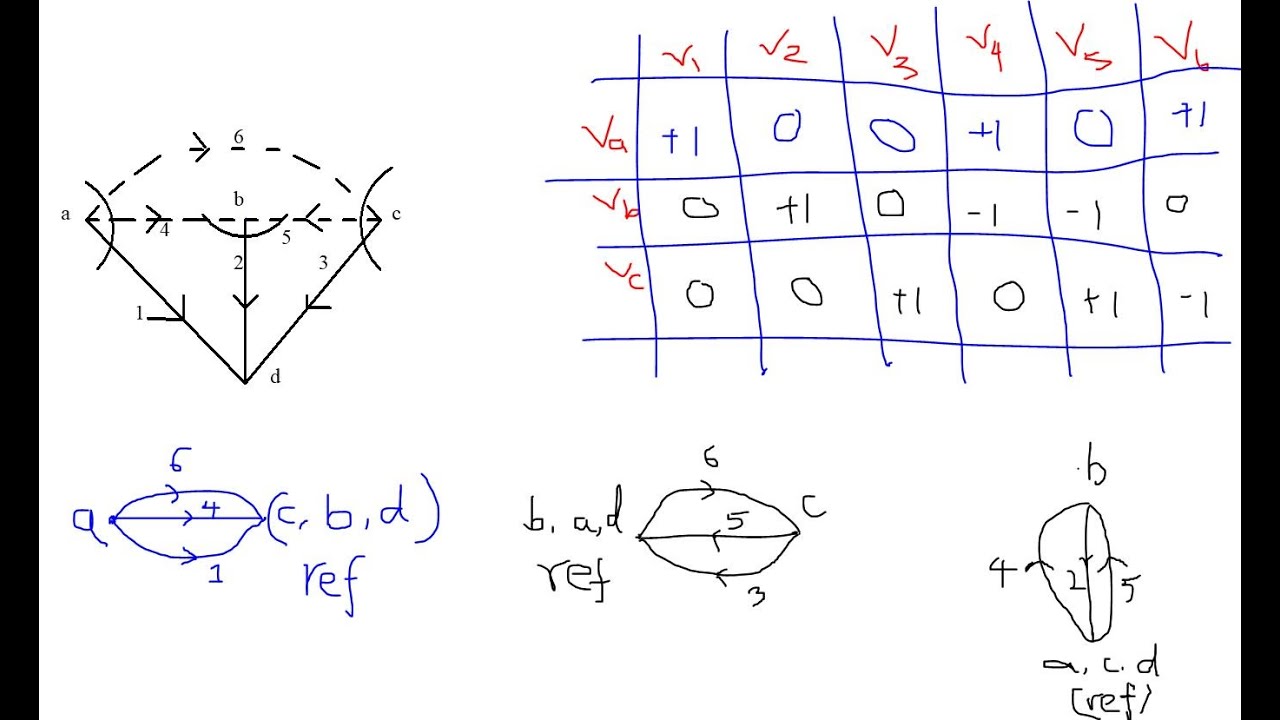 6
a b c
4 5
2 3
1
d
V1 V2 V3 V4 V5 V6
Va +1 0 0 +1 0 +1
Vb 0 +1 0 -1 -1 0
Vc 0 0 +1 0 +1 -1
6
a 4 (c, b, d)
1 ref
6
b, a, d 5 c
ref 3
b
4 2 5
a, c, d
(ref)